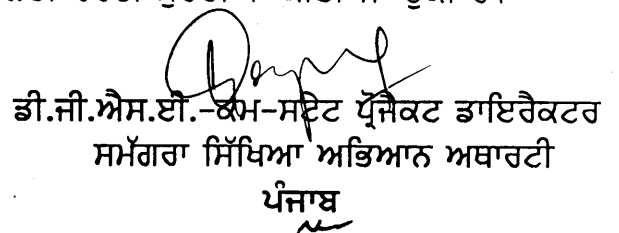 ਡੀ.ਜੀ.ਐਸ.ਈ.-ਕਮ-ਸਟੇਟ ਪ੍ਰੋਜੈਕਟ ਡਾਇਰੈਕਟਰ
ਸਮੱਗਰਾ ਸਿੱਖਿਆ ਅਭਿਆਨ ਅਥਾਰਟੀ
ਪੰਜਾਬ